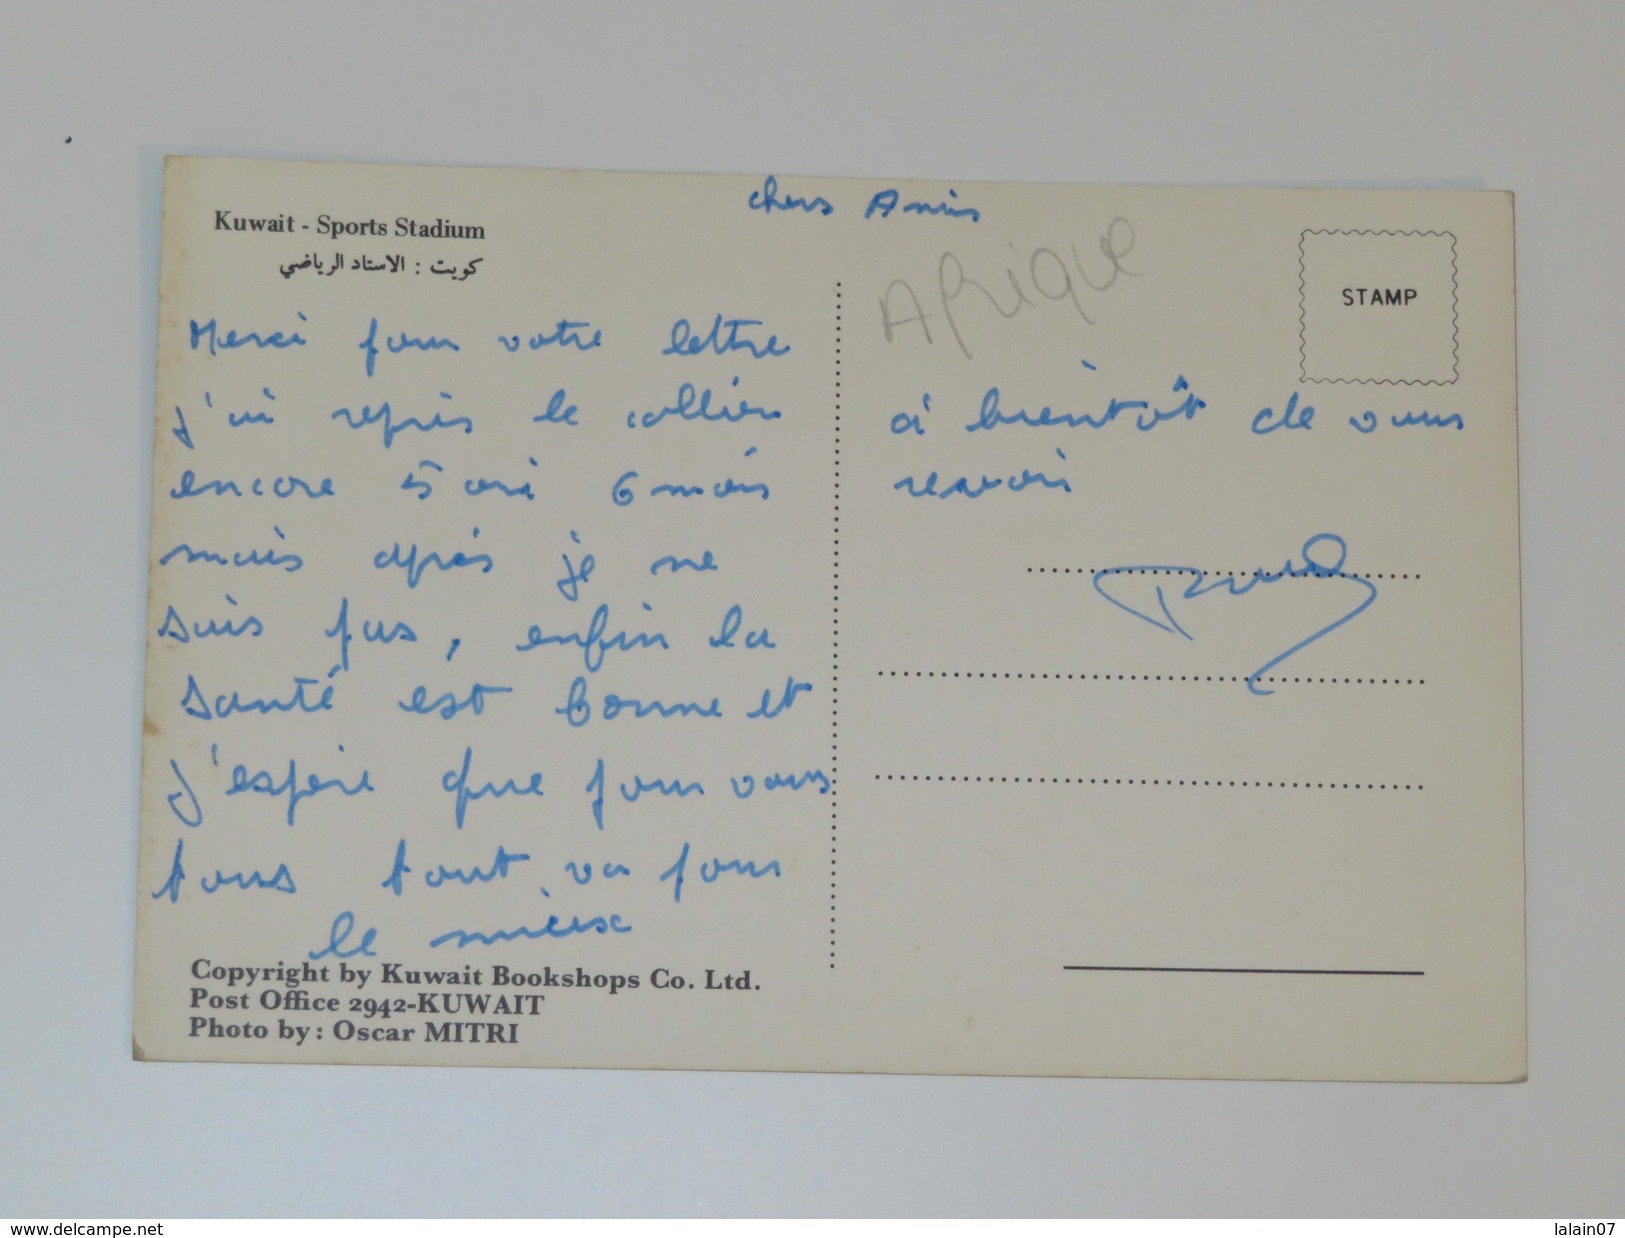 chers Amis
Kuwait - Sports Stadium
كويت : الاستاد الرياضي
Afrique
STAMP
Merci pour votre lettre
j'ai repris le collier
encore 5 ou 6 mois
mais après je ne
sais pas, enfin la
santé est bonne et
j'espère que pour vous
tous tout va pour
le mieux
à bientôt de vous
revoir
Copyright by Kuwait Bookshops Co. Ltd.
Post Office 2942-KUWAIT
Photo by: Oscar MITRI
www.delcampe.net
lalain07